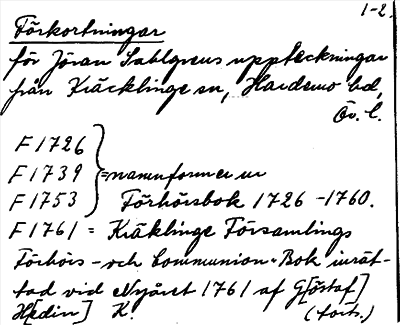 1-2.
Förkortningar
för Jöran Sahlgrens uppteckningar
från Kräcklinge sn, Hardemo hd,
Ör. l.
F 1726
F 1739 } = namnformer ur
F 1753 Förhörsbok 1726-1760.
F 1761 = Kräklinge Församlings
Förhörs- och Communion-Bok inrät-
tad vid Nyåret 1761 af G[östaf]
H[edin] K. (forts.)